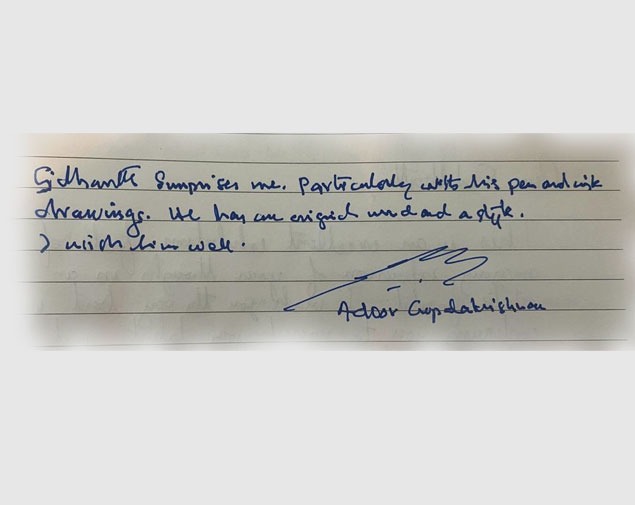 Sidharth Surprises me. Particularly with his pen and ink
drawings. He has an original mind and a style.
I wish him well.
Adoor Gopalakrishnan